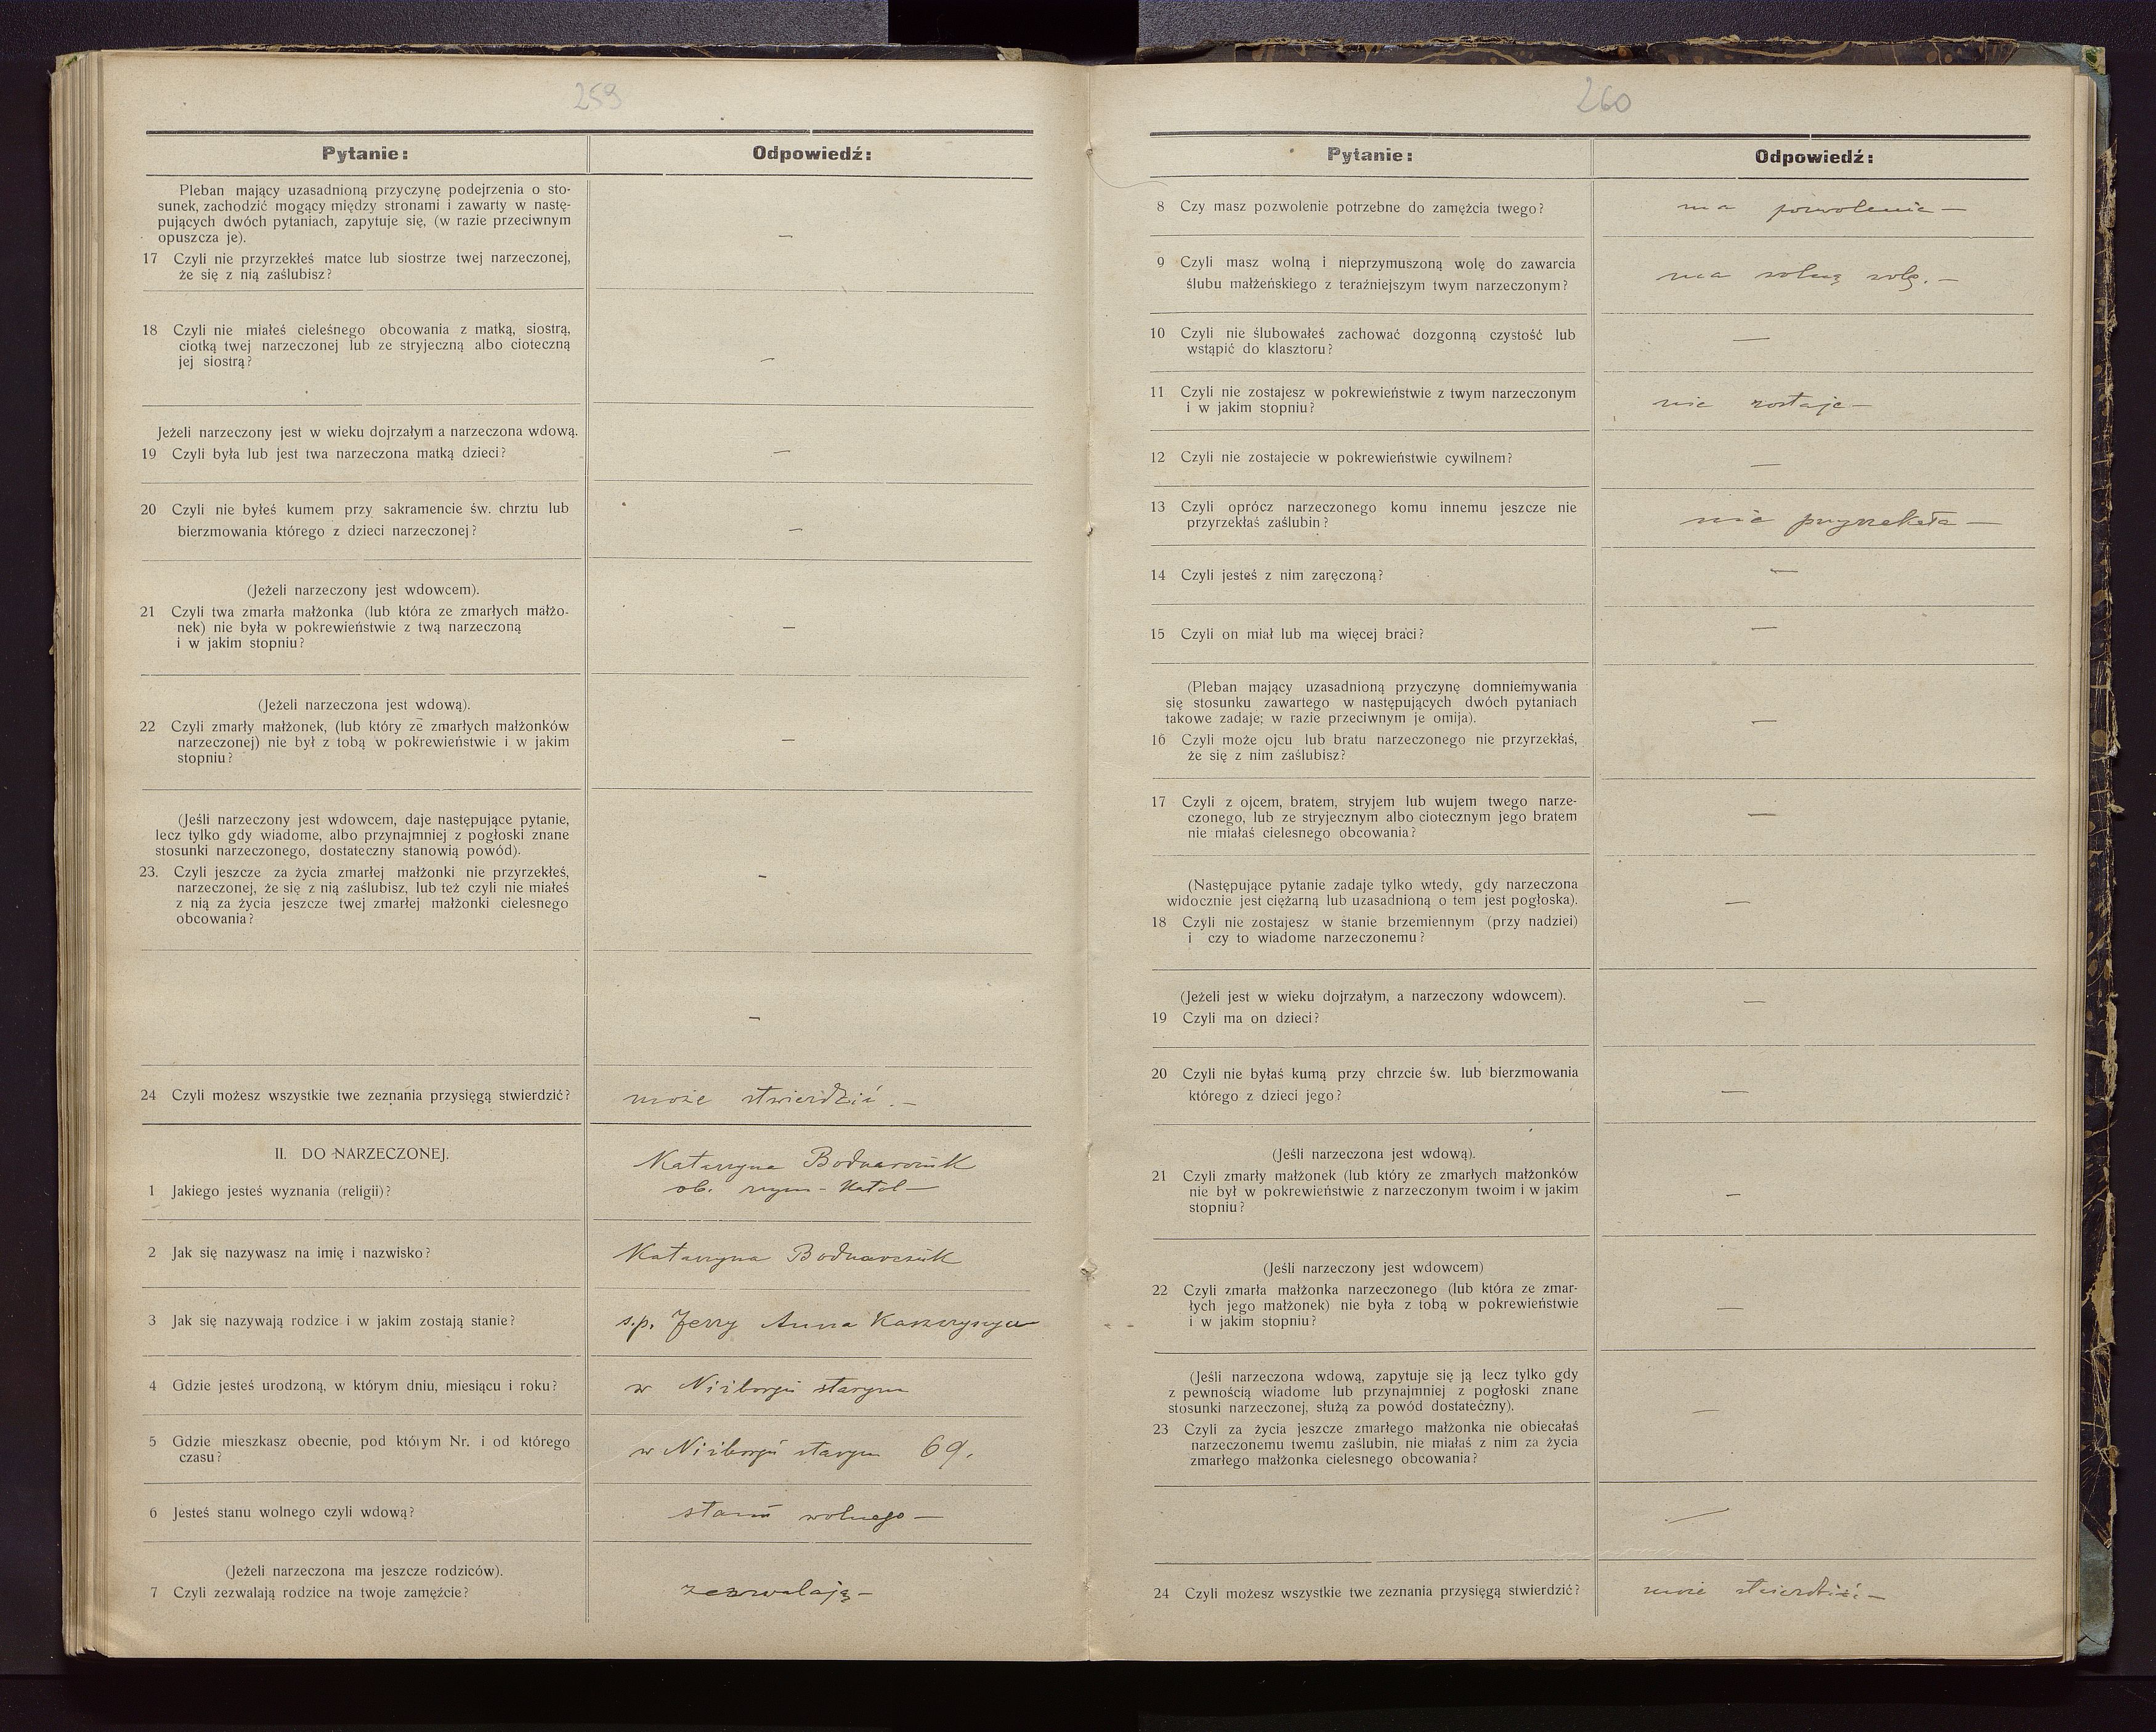 259
Pytanie: Odpowiedź:
Pleban mający uzasadnioną przyczynę podejrzenia o sto-
sunek, zachodzić mogący między stronami i zawarty w nastę-
pujących dwóch pytaniach, zapytuje się, (w razie przeciwnym
opuszcza je).
—
17 Czyli nie przyrzekłeś matce lub siostrze twej narzeczonej,
że się z nią zaślubisz?
18 Czyli nie miałeś cieleśnego obcowania z matką, siostrą,
ciotką twej narzeczonej lub ze stryjeczną albo cioteczną
jej siostrą?
—
Jeżeli narzeczony jest w wieku dojrzałym a narzeczona wdową.
19 Czyli była lub jest twa narzeczona matką dzieci? —
20 Czyli nie byłeś kumem przy sakramencie św. chrztu lub
bierzmowania którego z dzieci narzeczonej? —
(Jeżeli narzeczony jest wdowcem).
21 Czyli twa zmarła małżonka (lub która ze zmarłych małżo-
nek) nie była w pokrewieństwie z twą narzeczoną —
i w jakim stopniu?
(Jeżeli narzeczona jest wdową).
22 Czyli zmarły małżonek, (lub który ze zmarłych małżonków
narzeczonej) nie był z tobą w pokrewieństwie i w jakim —
stopniu?
(Jeśli narzeczony jest wdowcem, daje następujące pytanie,
lecz tylko gdy wiadome, albo przynajmniej z pogłoski znane
stosunki narzeczonego, dostateczny stanowią powód).
23. Czyli jeszcze za życia zmarłej małżonki nie przyrzekłeś, —
narzeczonej, że się z nią zaślubisz, lub też czyli nie miałeś
z nią za życia jeszcze twej zmarłej małżonki cielesnego
obcowania?
—
24 Czyli możesz wszystkie twe zeznania przysięgą stwierdzić? może stwierdzić. —
II. DO NARZECZONEJ. Katarzyna Bodnarczuk
1 Jakiego jesteś wyznania (religii)? ob. rzym-katol —
2 Jak się nazywasz na imię i nazwisko? Katarzyna Bodnarczuk
3 Jak się nazywają rodzice i w jakim zostają stanie? s.p. Jerzy Anna
4 Gdzie jesteś urodzoną, w którym dniu, miesiącu i roku? w Niżborgu starym
5 Gdzie mieszkasz obecnie, pod którym Nr. i od którego
czasu? w Niżborgu starym 69.
6 Jesteś stanu wolnego czyli wdową? stanu wolnego —
(Jeżeli narzeczona ma jeszcze rodziców).
7 Czyli zezwalają rodzice na twoje zamężcie? zezwalają —
260
Pytanie: Odpowiedź:
8 Czy masz pozwolenie potrzebne do zamężcia twego? ma pozwolenie —
9 Czyli masz wolną i nieprzymuszoną wolę do zawarcia
ślubu małżeńskiego z teraźniejszym twym narzeczonym? ma wolną wolę. —
10 Czyli nie ślubowałeś zachować dozgonną czystość lub
wstąpić do klasztoru? —
11 Czyli nie zostajesz w pokrewieństwie z twym narzeczonym
i w jakim stopniu? nie zostaje —
12 Czyli nie zostajecie w pokrewieństwie cywilnem? —
13 Czyli oprócz narzeczonego komu innemu jeszcze nie
przyrzekłaś zaślubin? nie przyrzekła —
14 Czyli jesteś z nim zaręczoną? —
15 Czyli on miał lub ma więcej braci? —
(Pleban mający uzasadnioną przyczynę domniemywania
się stosunku zawartego w następujących dwóch pytaniach
takowe zadaje; w razie przeciwnym je omija). —
16 Czyli może ojcu lub bratu narzeczonego nie przyrzekłaś,
że się z nim zaślubisz?
17 Czyli z ojcem, bratem, stryjem lub wujem twego narze-
czonego, lub ze stryjecznym albo ciotecznym jego bratem —
nie miałaś cielesnego obcowania?
(Następujące pytanie zadaje tylko wtedy, gdy narzeczona
widocznie jest ciężarną lub uzasadnioną o tem jest pogłoska). —
18 Czyli nie zostajesz w stanie brzemiennym (przy nadziei)
i czy to wiadome narzeczonemu?
(Jeżeli jest w wieku dojrzałym, a narzeczony wdowcem). —
19 Czyli ma on dzieci?
20 Czyli nie byłaś kumą przy chrzcie św. lub bierzmowania
którego z dzieci jego? —
(Jeśli narzeczona jest wdową).
21 Czyli zmarły małżonek (lub który ze zmarłych małżonków
nie był w pokrewieństwie z narzeczonym twoim i w jakim —
stopniu?
(Jeśli narzeczony jest wdowcem)
22 Czyli zmarła małżonka narzeczonego (lub która ze zmar-
łych jego małżonek) nie była z tobą w pokrewieństwie —
i w jakim stopniu?
(Jeśli narzeczona wdową, zapytuje się ją lecz tylko gdy
z pewnością wiadome lub przynajmniej z pogłoski znane
stosunki narzeczonej, służą za powód dostateczny). —
23 Czyli za życia jeszcze zmarłego małżonka nie obiecałaś
narzeczonemu twemu zaślubin, nie miałaś z nim za życia
zmarłego małżonka cielesnego obcowania?
—
24 Czyli możesz wszystkie twe zeznania przysięgą stwierdzić? może stwierdzić —